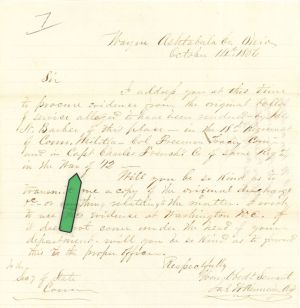 Wayne Ashtabula Co Ohio
October 14th 1856
Sir
I address you at this time
to procure evidence from the original
of service alleged to have been rendered by
Barber of this place in the Regiment
of Conn. Militia Col Freeman Tracy Com
and Capt of Same Regt
in the War of 12
Will you be so kind as to
transmit me a copy of the original discharge
or anything relating to the matter. I wish
to use as evidence at Washington D.C. If
it does not come under the head of your
department will you be so kind as to
this to the proper officer.
Respectfully
Your Obdt Servant
Secy of State
Conn